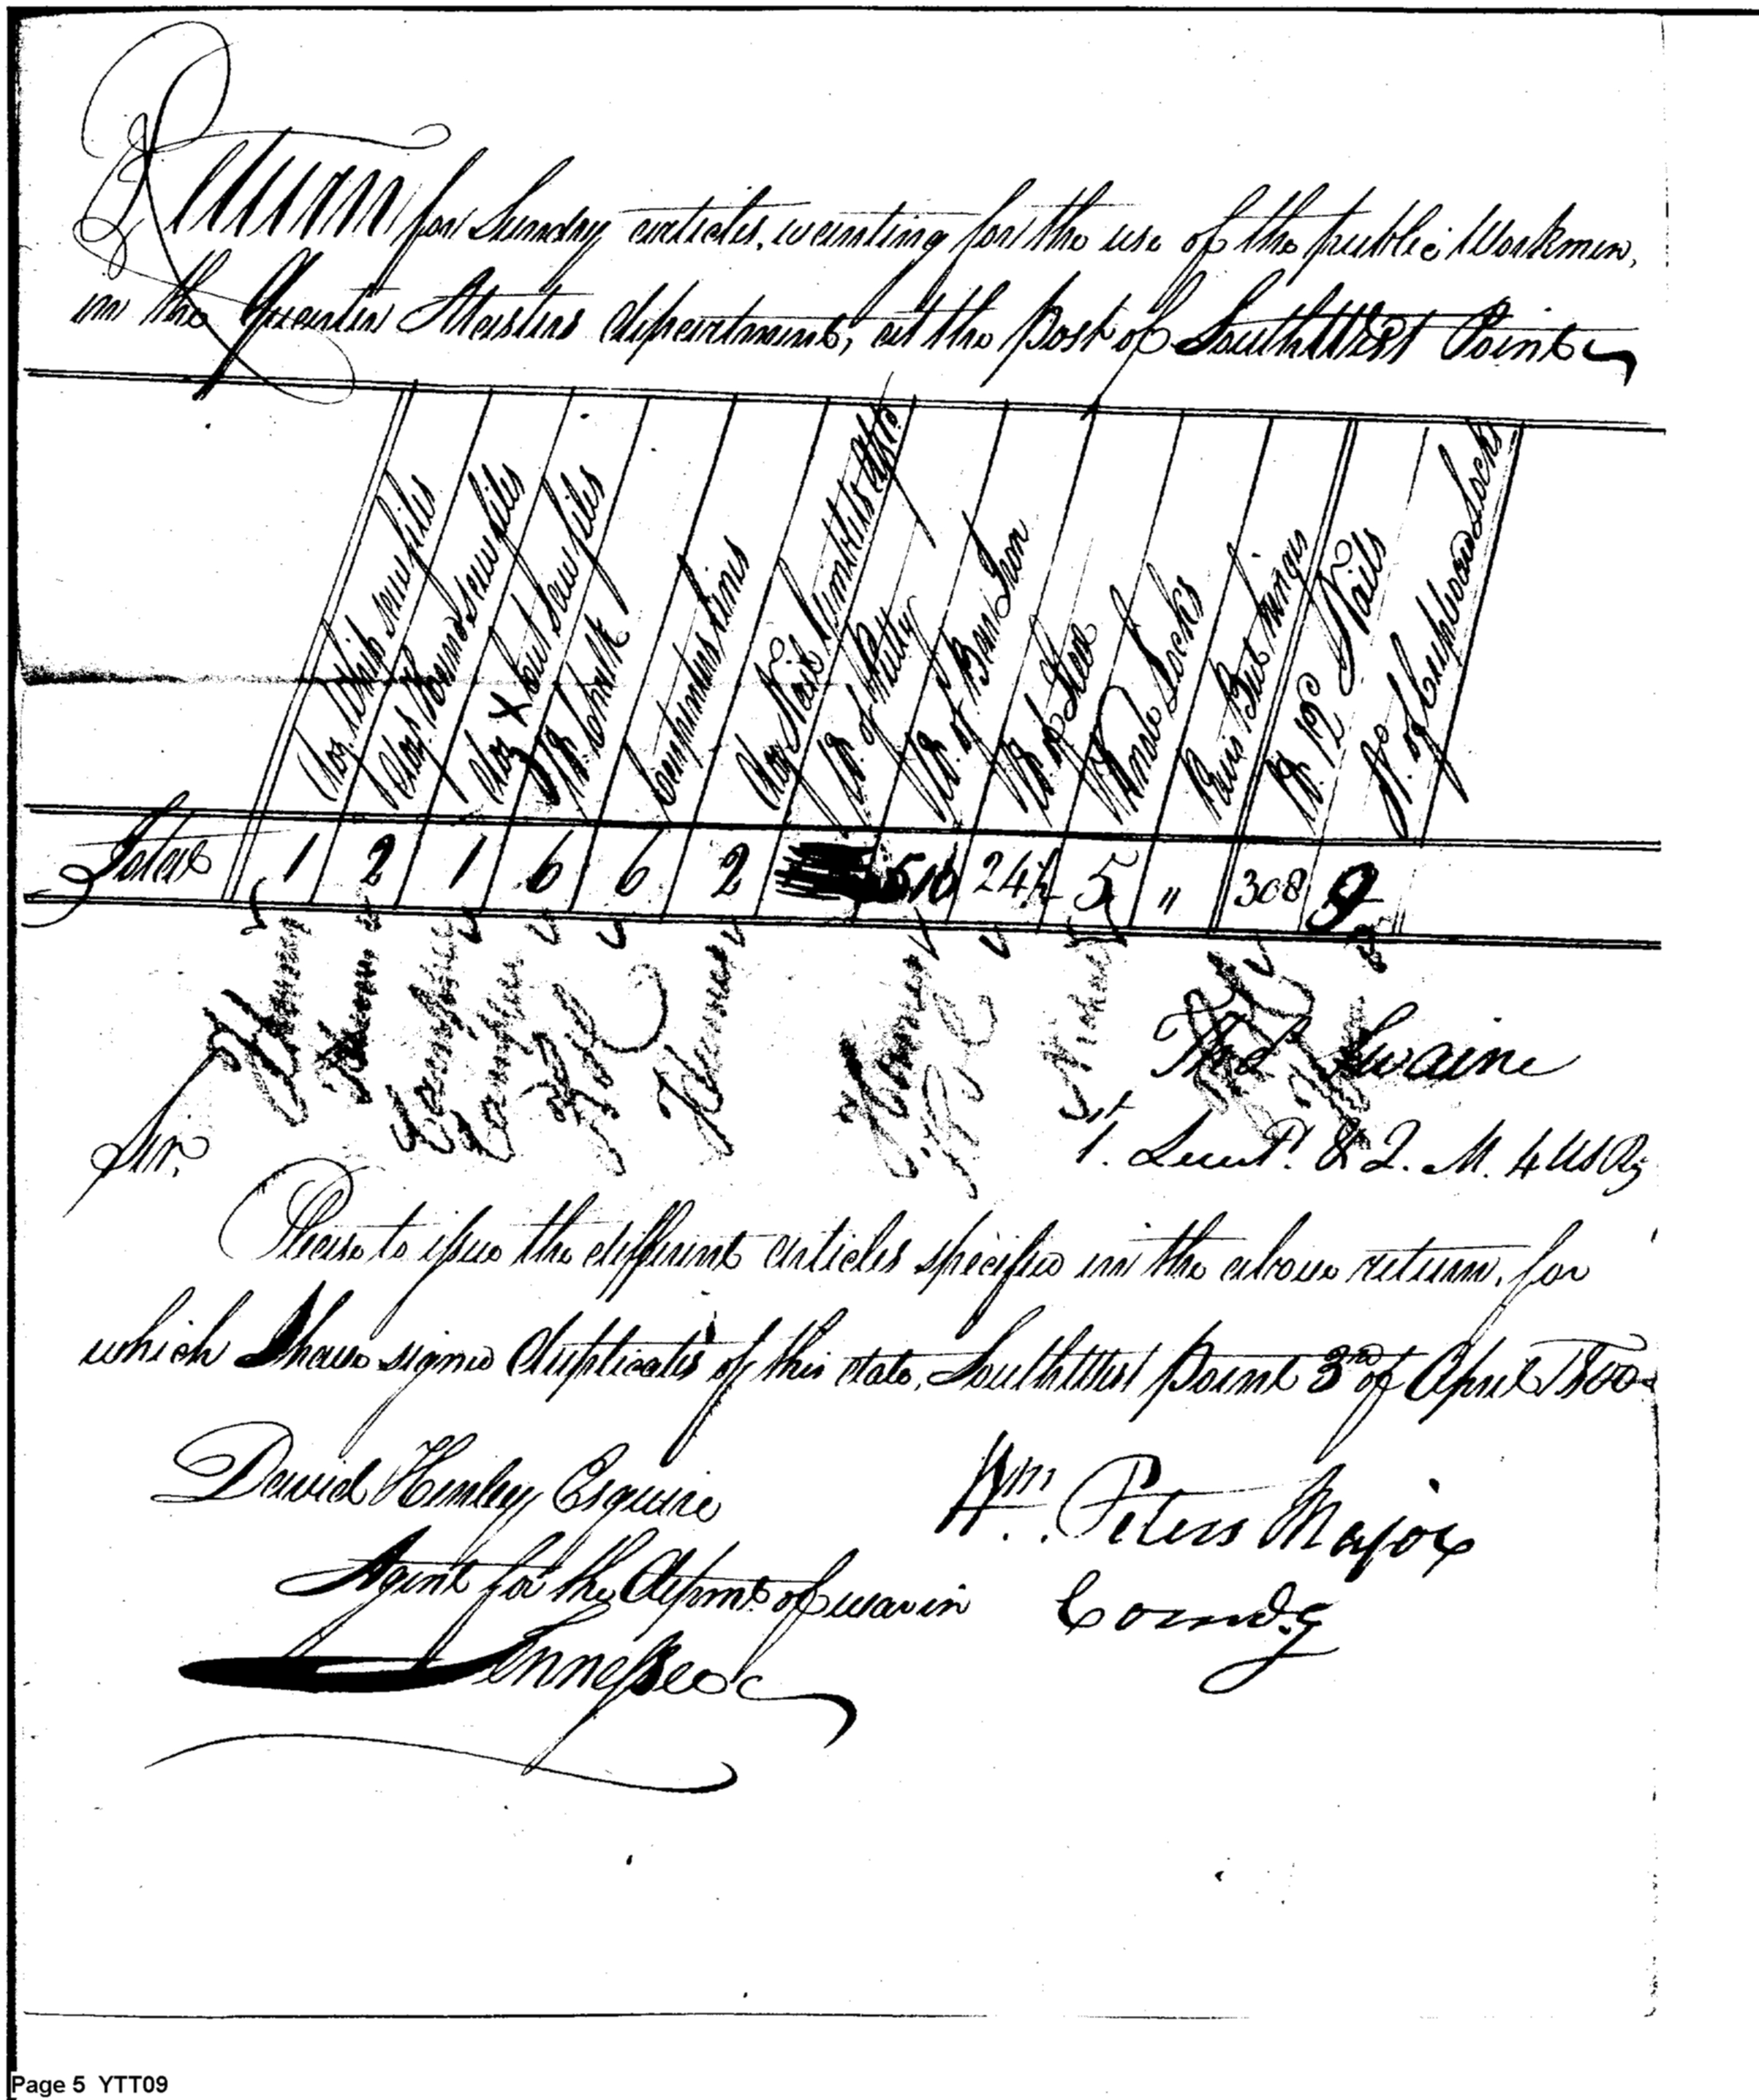 Return for Sundry articles, wanting for the use of the public Workmen,
in the Quarter Masters department, at the post of South West Point
Doz. Whip saw files
Doz. Hand saw files
Doz X Cut saw files
lb. Chalk
Carpenters lines
Doz Nail Gimblets
lb. of Putty
lb. of Bar Iron
lb. of Steel
Knob Locks
Pairs But hinges
lb. 12d Nails
N. of Cupboard Locks
Total 1 2 1 6 6 2 24 5 " 308 9
Thos. Swaine
1st. Lieut. & Q. M. 4 US Rg
Sir,
Please to issue the different articles specified in the above return, for
which I have signed duplicates of this date, South West point 3rd of April 1800
David Henley Esquire
Wm. Peters Major
Agent for the depmt. of war in
Comdg
Tennessee
Page 5 YTT09